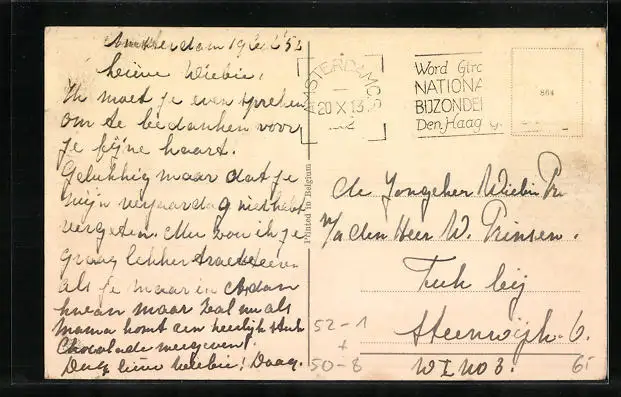 Amsterdam 19
Lieve Wiebie,
Ik moet je even spreken
om te bedanken voor
je fijne kaart.
Gelukkig maar dat je
mijn verjaardag niet hebt
vergeten. Nu zou ik je
graag lekker tracteeren
als je maar in A'dam
kwam maar zal nu als
Mama komt een heerlijk stuk
Chocolade meegeven.
Dag lieve Wiebie! Daag.
AMSTERDAM CS
20 X 13
Word Giro
NATIONA
BIJZONDE
Den Haag
864
Printed in Belgium
de Jongeheer Wiebie Pr
p/a den Heer W. Prinsen.
Tuk bij
Steenwijk. O.
W I No 3.
52-1
+
50-8
6,